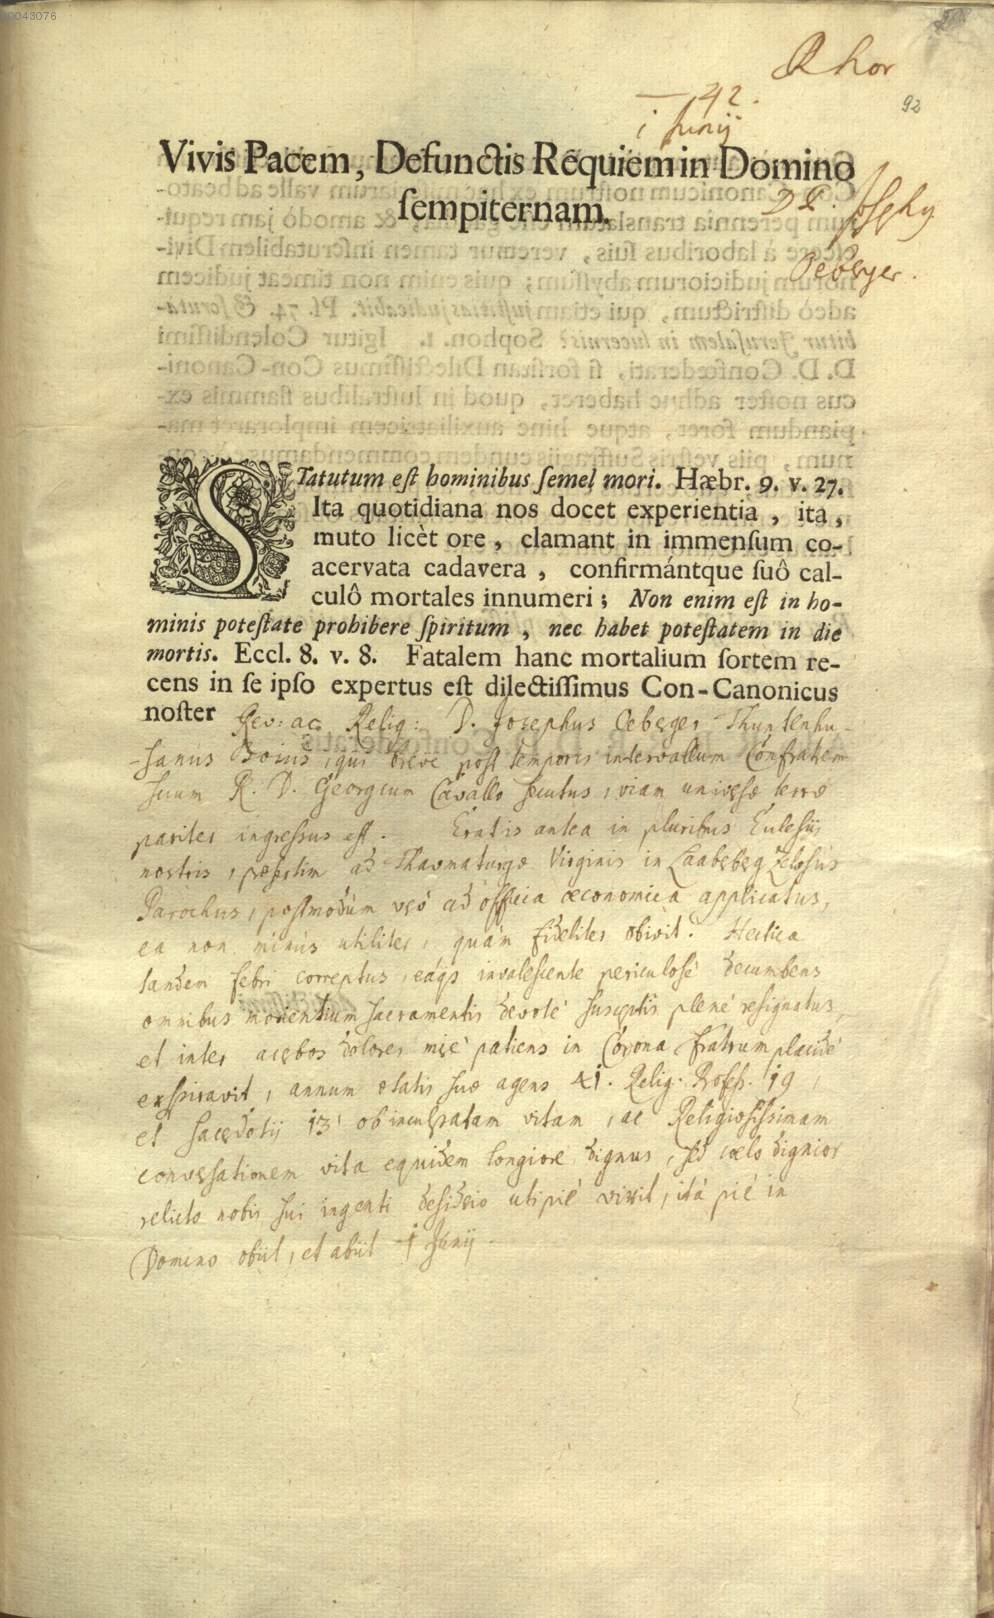 0043076
Rhor
92
42.
i Junij
D. Josephq
Oeberger.
Vivis Pacem, Defunctis Requiem in Domino
ſempiternam.
STatutum eſt hominibus ſemel mori. Hæbr. 9. v. 27.
Ita quotidiana nos docet experientia, ita,
muto licèt ore, clamant in immenſum co-
acervata cadavera, confirmántque ſuô cal-
culô mortales innumeri; Non enim eſt in ho-
minis poteſtate prohibere ſpiritum, nec habet poteſtatem in die
mortis. Eccl. 8. v. 8. Fatalem hanc mortalium ſortem re-
cens in ſe ipſo expertus eſt dilectiſſimus Con-Canonicus
noſter Rev: ac Relig: D. Josephus Oeberger Thyrtenhu-
-sanus Boius, qui breve post temporis intervallum Confratrem
suum R. D. Georgium Cavallo secutus, viam universæ terræ
pariter ingressus est. Eratis antea in pluribus Eulesijs
nostris, præsertim ad Thaumaturgæ Virginis in Laaberberg Zelosus
Parochus, postmodùm verò ad officia œconomica applicatus,
ea non minùs utiliter, quàm fideliter obivit. Hectica
tandem febri correptus, eáqs invalescente periculosè decumbens
omnibus morientium sacramentis devotè susceptis plenè resignatus,
et inter acerbos dolores mirè patiens in Corona fratrum placidè
exspiravit, annum ætatis suæ agens 41. Relig. Profess. 19,
et sacerdotij 13. ob inculpatam vitam, ac Religiosissimam
conversationem vita equidem longiore dignus, sed cœlo dignior
relicto nobis sui ingenti desiderio uti piè vixit, ità piè in
Domino obiit, et abiit 1 Junij.